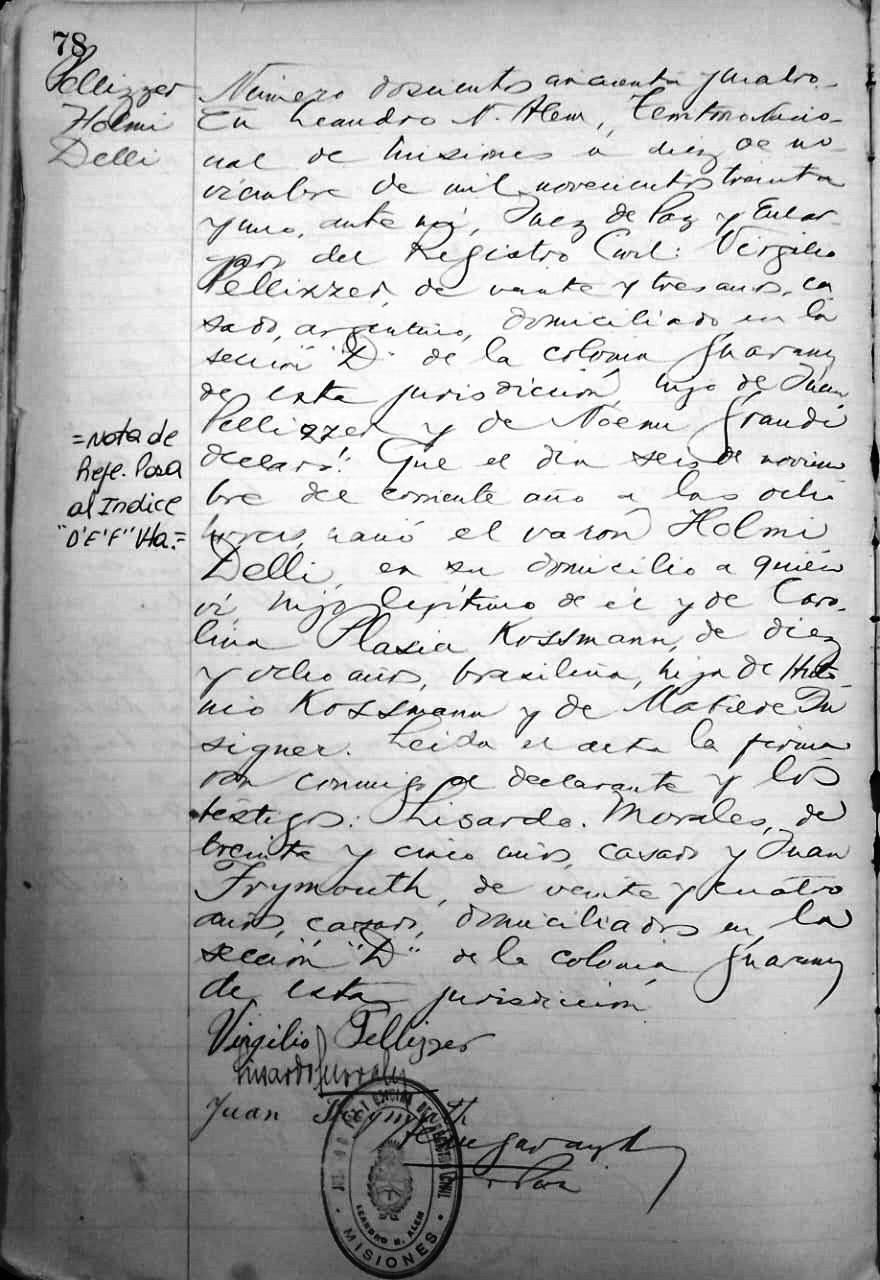 78
Pellizzer
Holmi
Delli
Número doscientos cincuenta y cuatro.
En Leandro N. Alem, Territorio Nacio-
nal de Misiones a diez de no-
viembre de mil novecientos treinta
y uno, ante mí, Juez de Paz y Encar-
gado del Registro Civil: Virgilio
Pellizzer, de veinte y tres años, ca
sado, argentino, domiciliado en la
sección "D" de la colonia Guarany
de esta jurisdicción, hijo de Juan
Pellizzer y de Noemi Grandi
declaró: Que el día seis de noviem
bre del corriente año a las ocho
horas, nació el varón Holmi
Delli, en su domicilio a quién
vi hijo legítimo de él y de Caro-
lina Plasia Kossmann, de diez
y ocho años, brasileña, hija de
Kossmann y de Matilde
signer. Leida el acta la firma
ron conmigo el declarante y los
testigos: Lisardo Morales, de
treinta y cinco años, casado y Juan
Frymouth, de veinte y cuatro
años, casado, domiciliados en la
sección "D" de la colonia Guarany
de esta jurisdicción
=Nota de
Refe. Pasa
al Indice
"D'E'F" Vta.=
Virgilio Pellizzer
Lisardo Morales
Juan Frymouth
REGISTRO CIVIL
LEANDRO N. ALEM
MISIONES